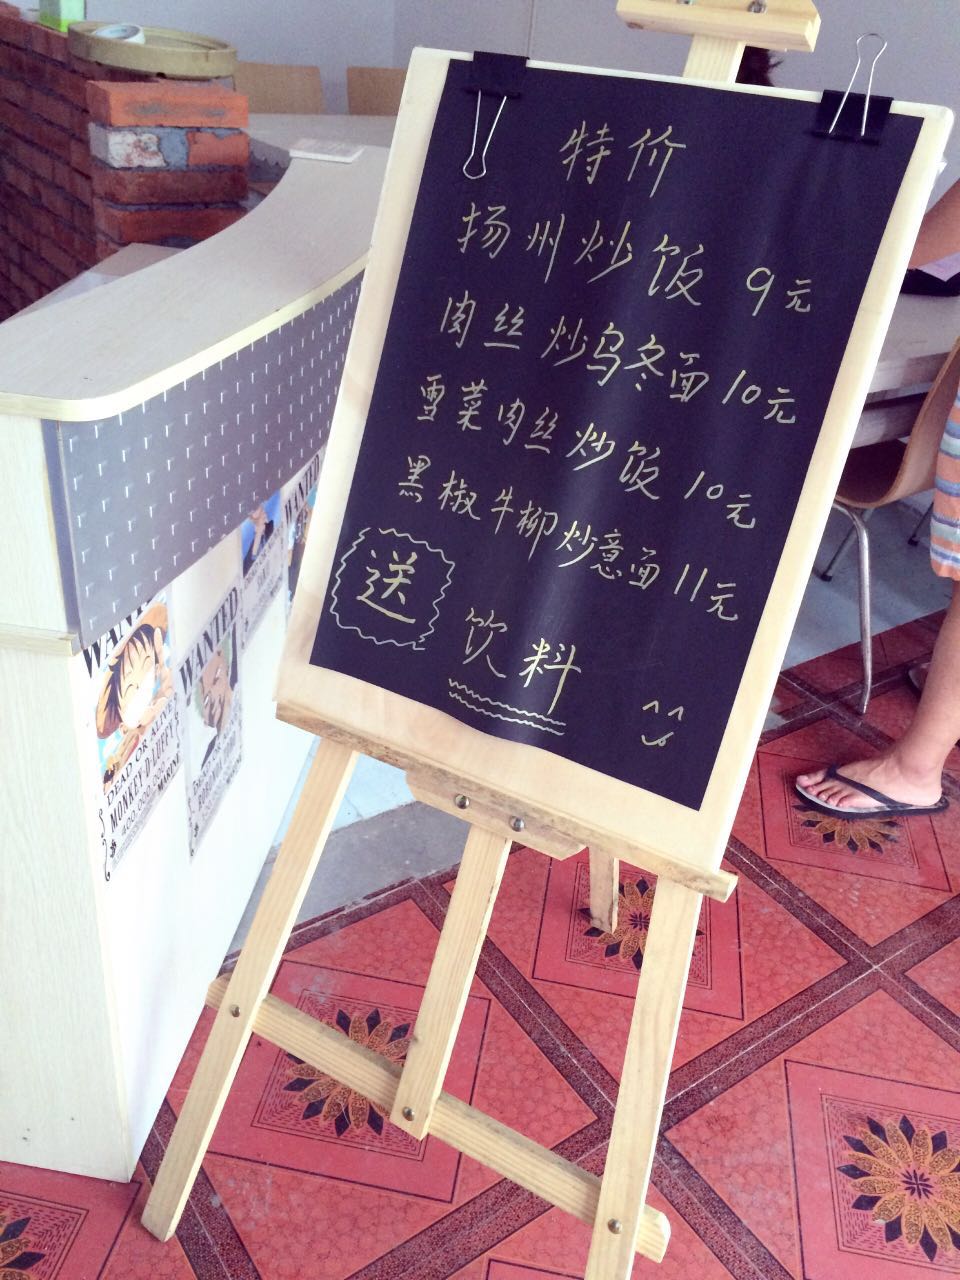 特价
扬州炒饭 9元
肉丝炒乌冬面 10元
雪菜肉丝炒饭 10元
黑椒牛柳炒意面 11元
送 饮料
WANTED
DEAD OR ALIVE
MONKEY·D·LUFFY
400,000,000
MARINE
WANTED
WANTED